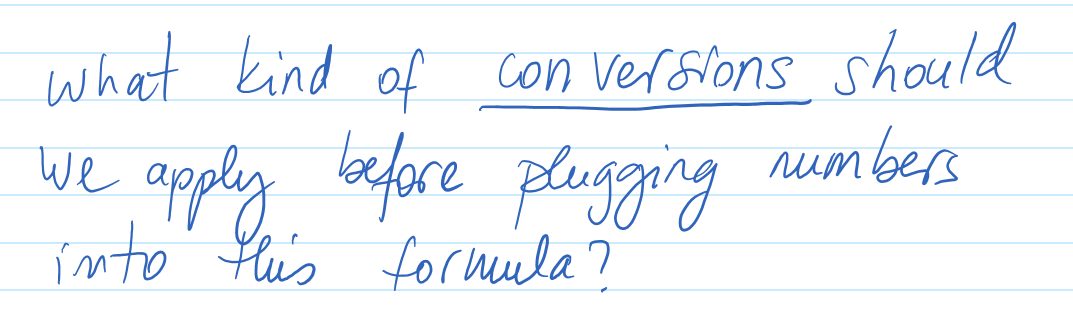 what kind of conversions should
we apply before plugging numbers
into this formula?